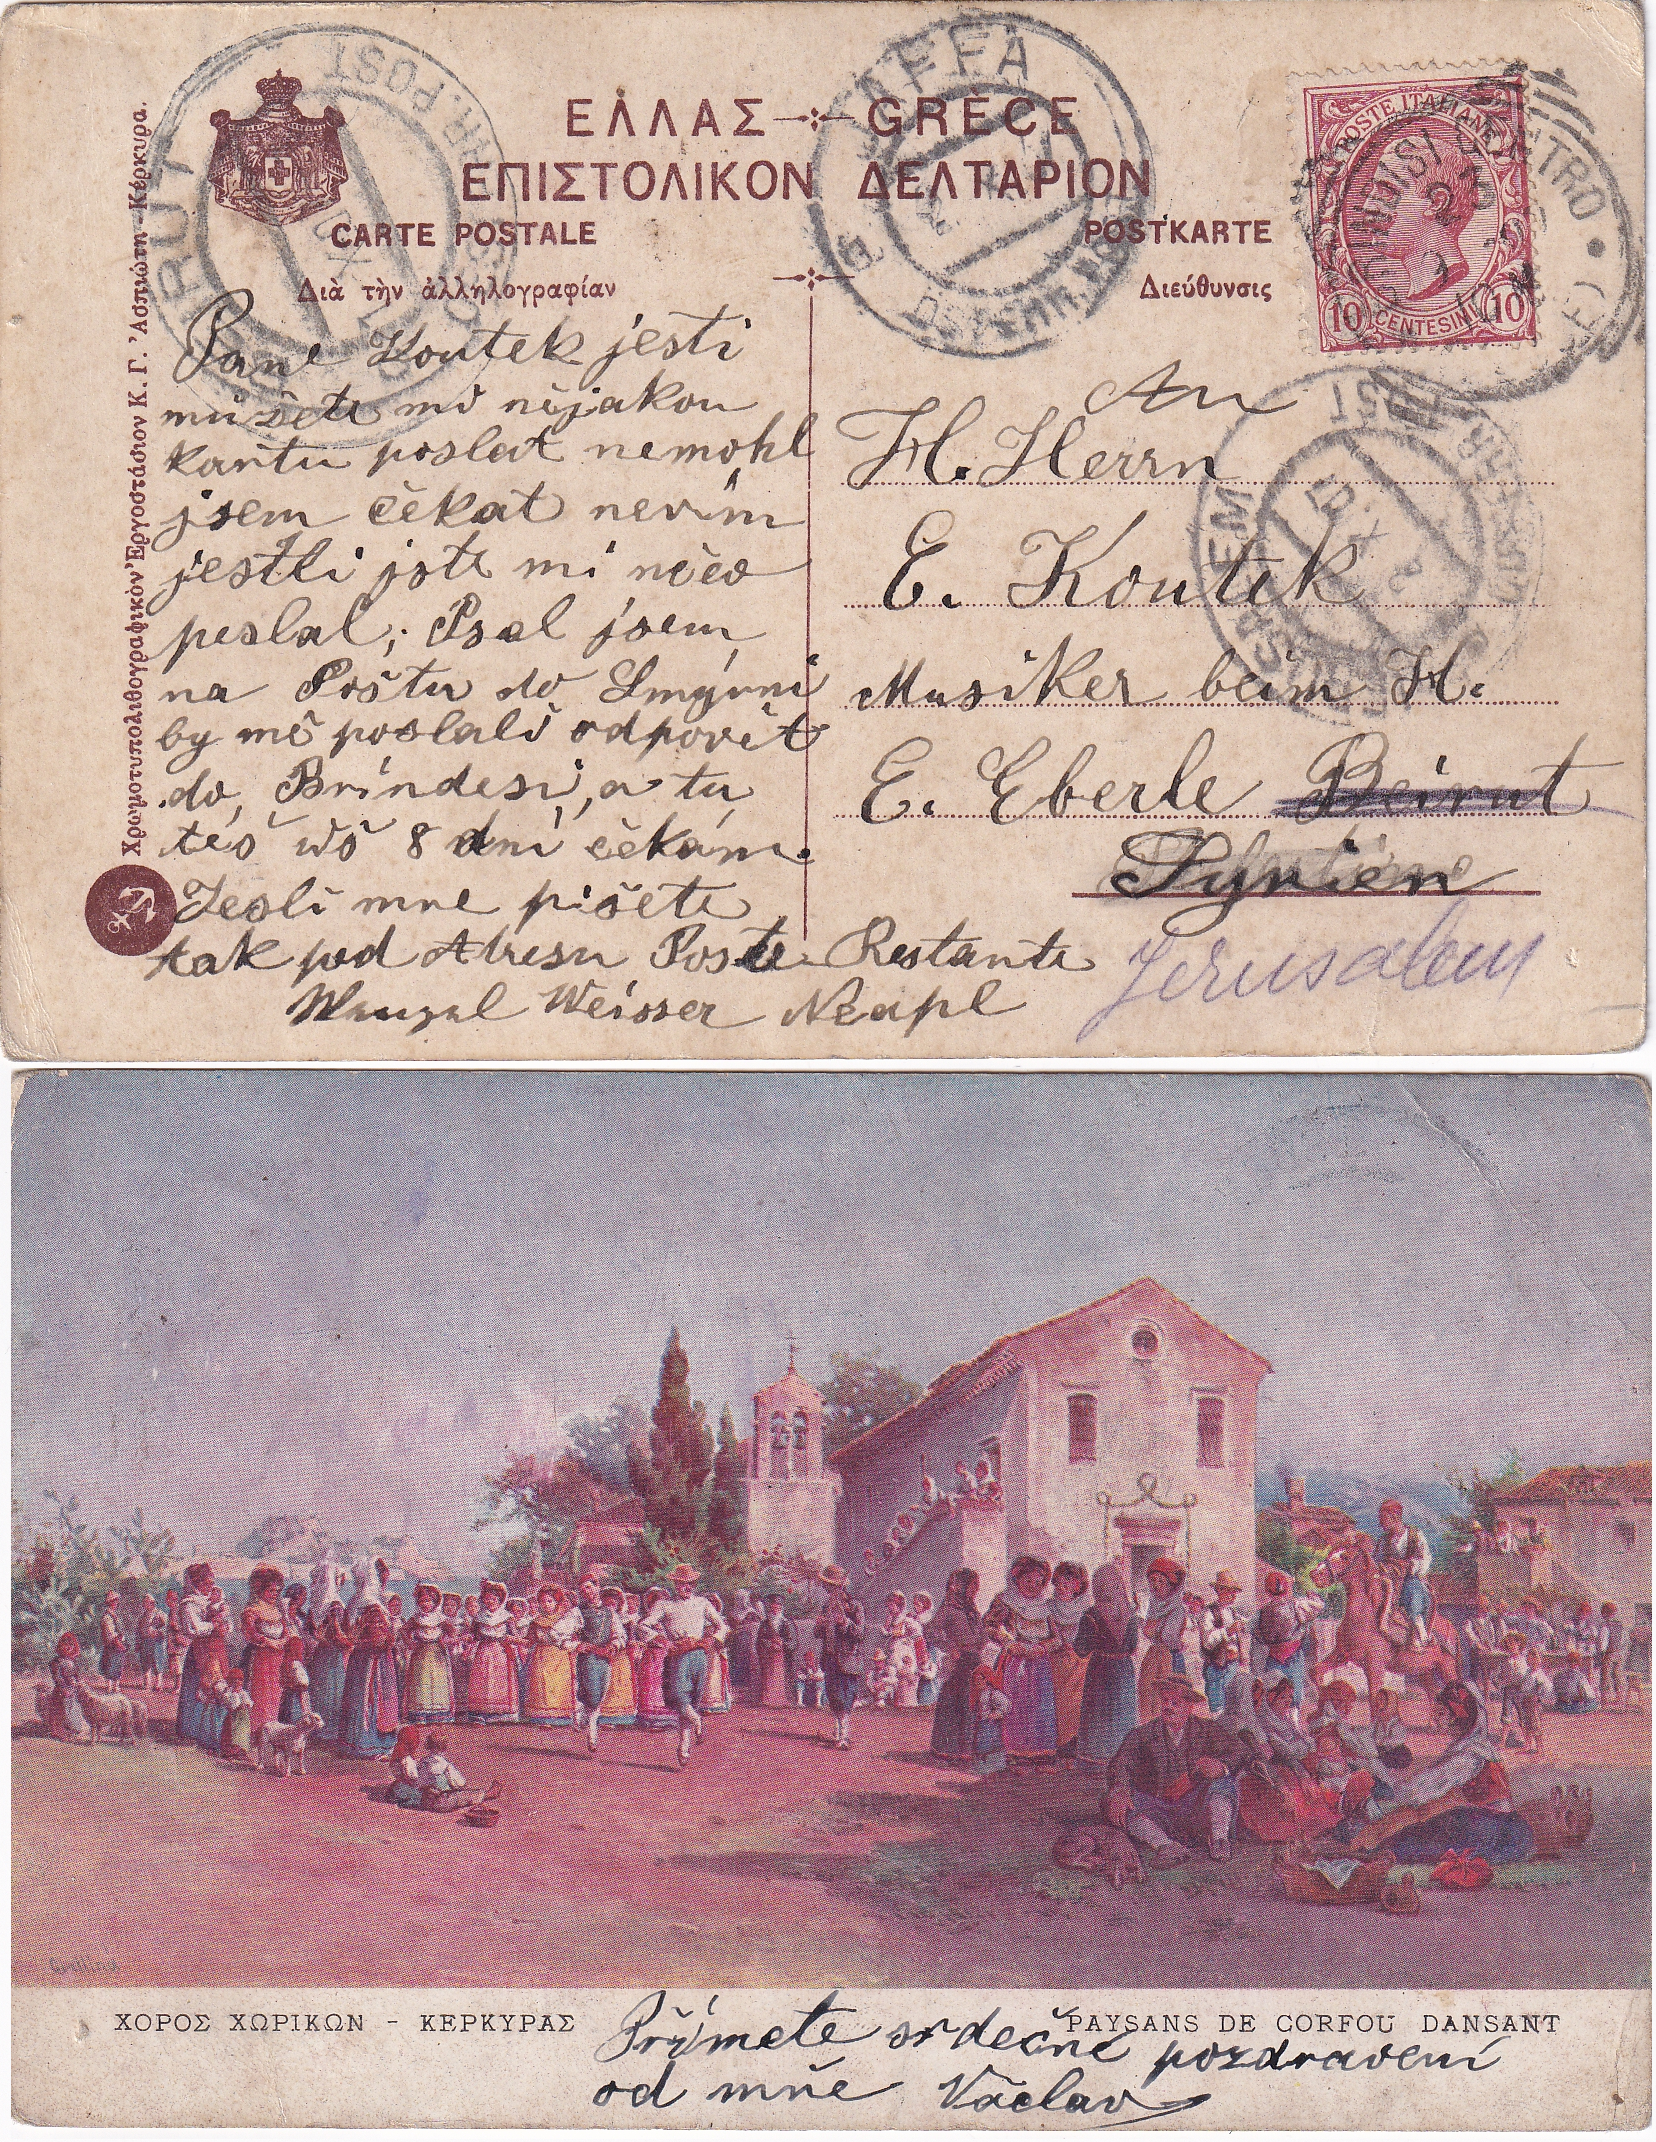 ΕΛΛΑΣ GRÈCE
ΕΠΙΣΤΟΛΙΚΟΝ ΔΕΛΤΑΡΙΟΝ
CARTE POSTALE POSTKARTE
Διὰ τὴν ἀλληλογραφίαν Διεύθυνσις
Χρωμοτυπολιθογραφικὸν Ἐργοστάσιον Κ. Γ. Ἀσπιώτη - Κέρκυρα.
JAFFA
POSTE ITALIANE
10 CENTESIMI 10
BRINDISI
CENTRO
Pane Koutek jesti
můžete mě nějakou
kartu poslat nemohl
jsem čekat nevím
jestli jste mi něco
poslal; Psal jsem
na Poštu do Smyrni
by mě poslali odpovět
do Brindesi, a tu
téš už 8 dní čekám.
Jesli mne pišete
tak pod Atresu Poste Restante
Wenzel Weisser Neapl
An
H. Herrn
E. Koutek
Musiker beim H.
E. Eberle Beirut
Syrien
Jerusalem
ΧΟΡΟΣ ΧΩΡΙΚΩΝ - ΚΕΡΚΥΡΑΣ
PAYSANS DE CORFOU DANSANT
Přímete srdečné pozdravení
od mňe Václav